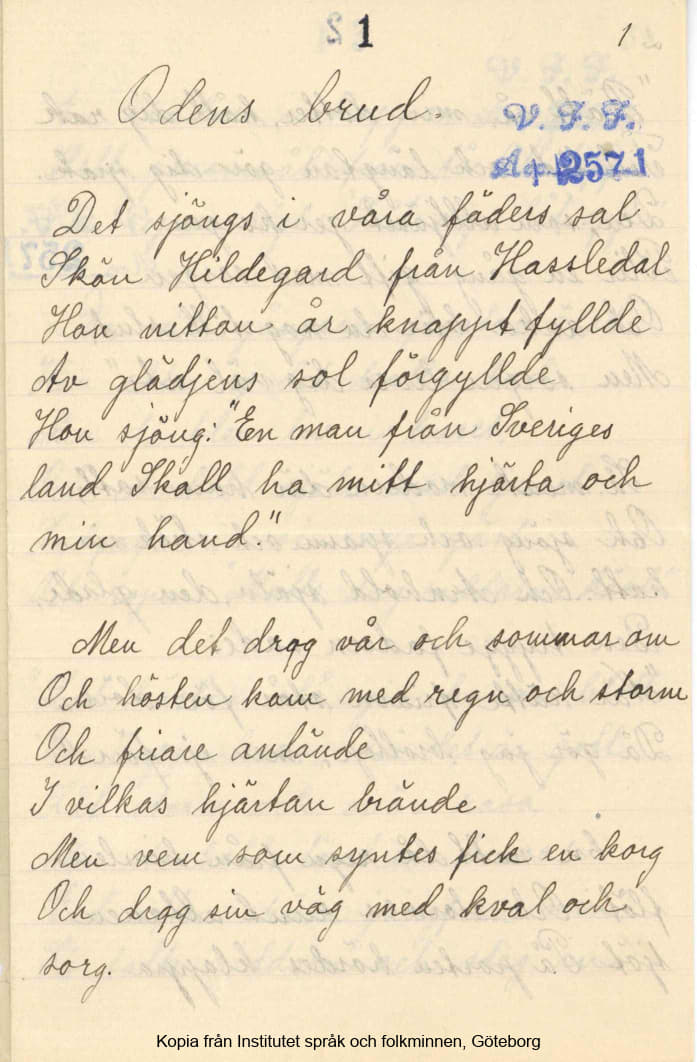 1
1
Odens brud.
V. F. F.
Ap 2571
Det sjöngs i våra fäders sal
Skön Hildegard från Hassledal
Hon nitton år knappt fyllde
Av glädjens sol förgyllde
Hon sjöng: "En man från Sveriges
land Skall ha mitt hjärta och
min hand."
Men det drog vår och sommar om
Och hösten kom med regn och storm
Och friare anlände
I vilkas hjärtan brände
Men vem som syntes fick en korg
Och drog sin väg med kval och
sorg.
Kopia från Institutet språk och folkminnen, Göteborg